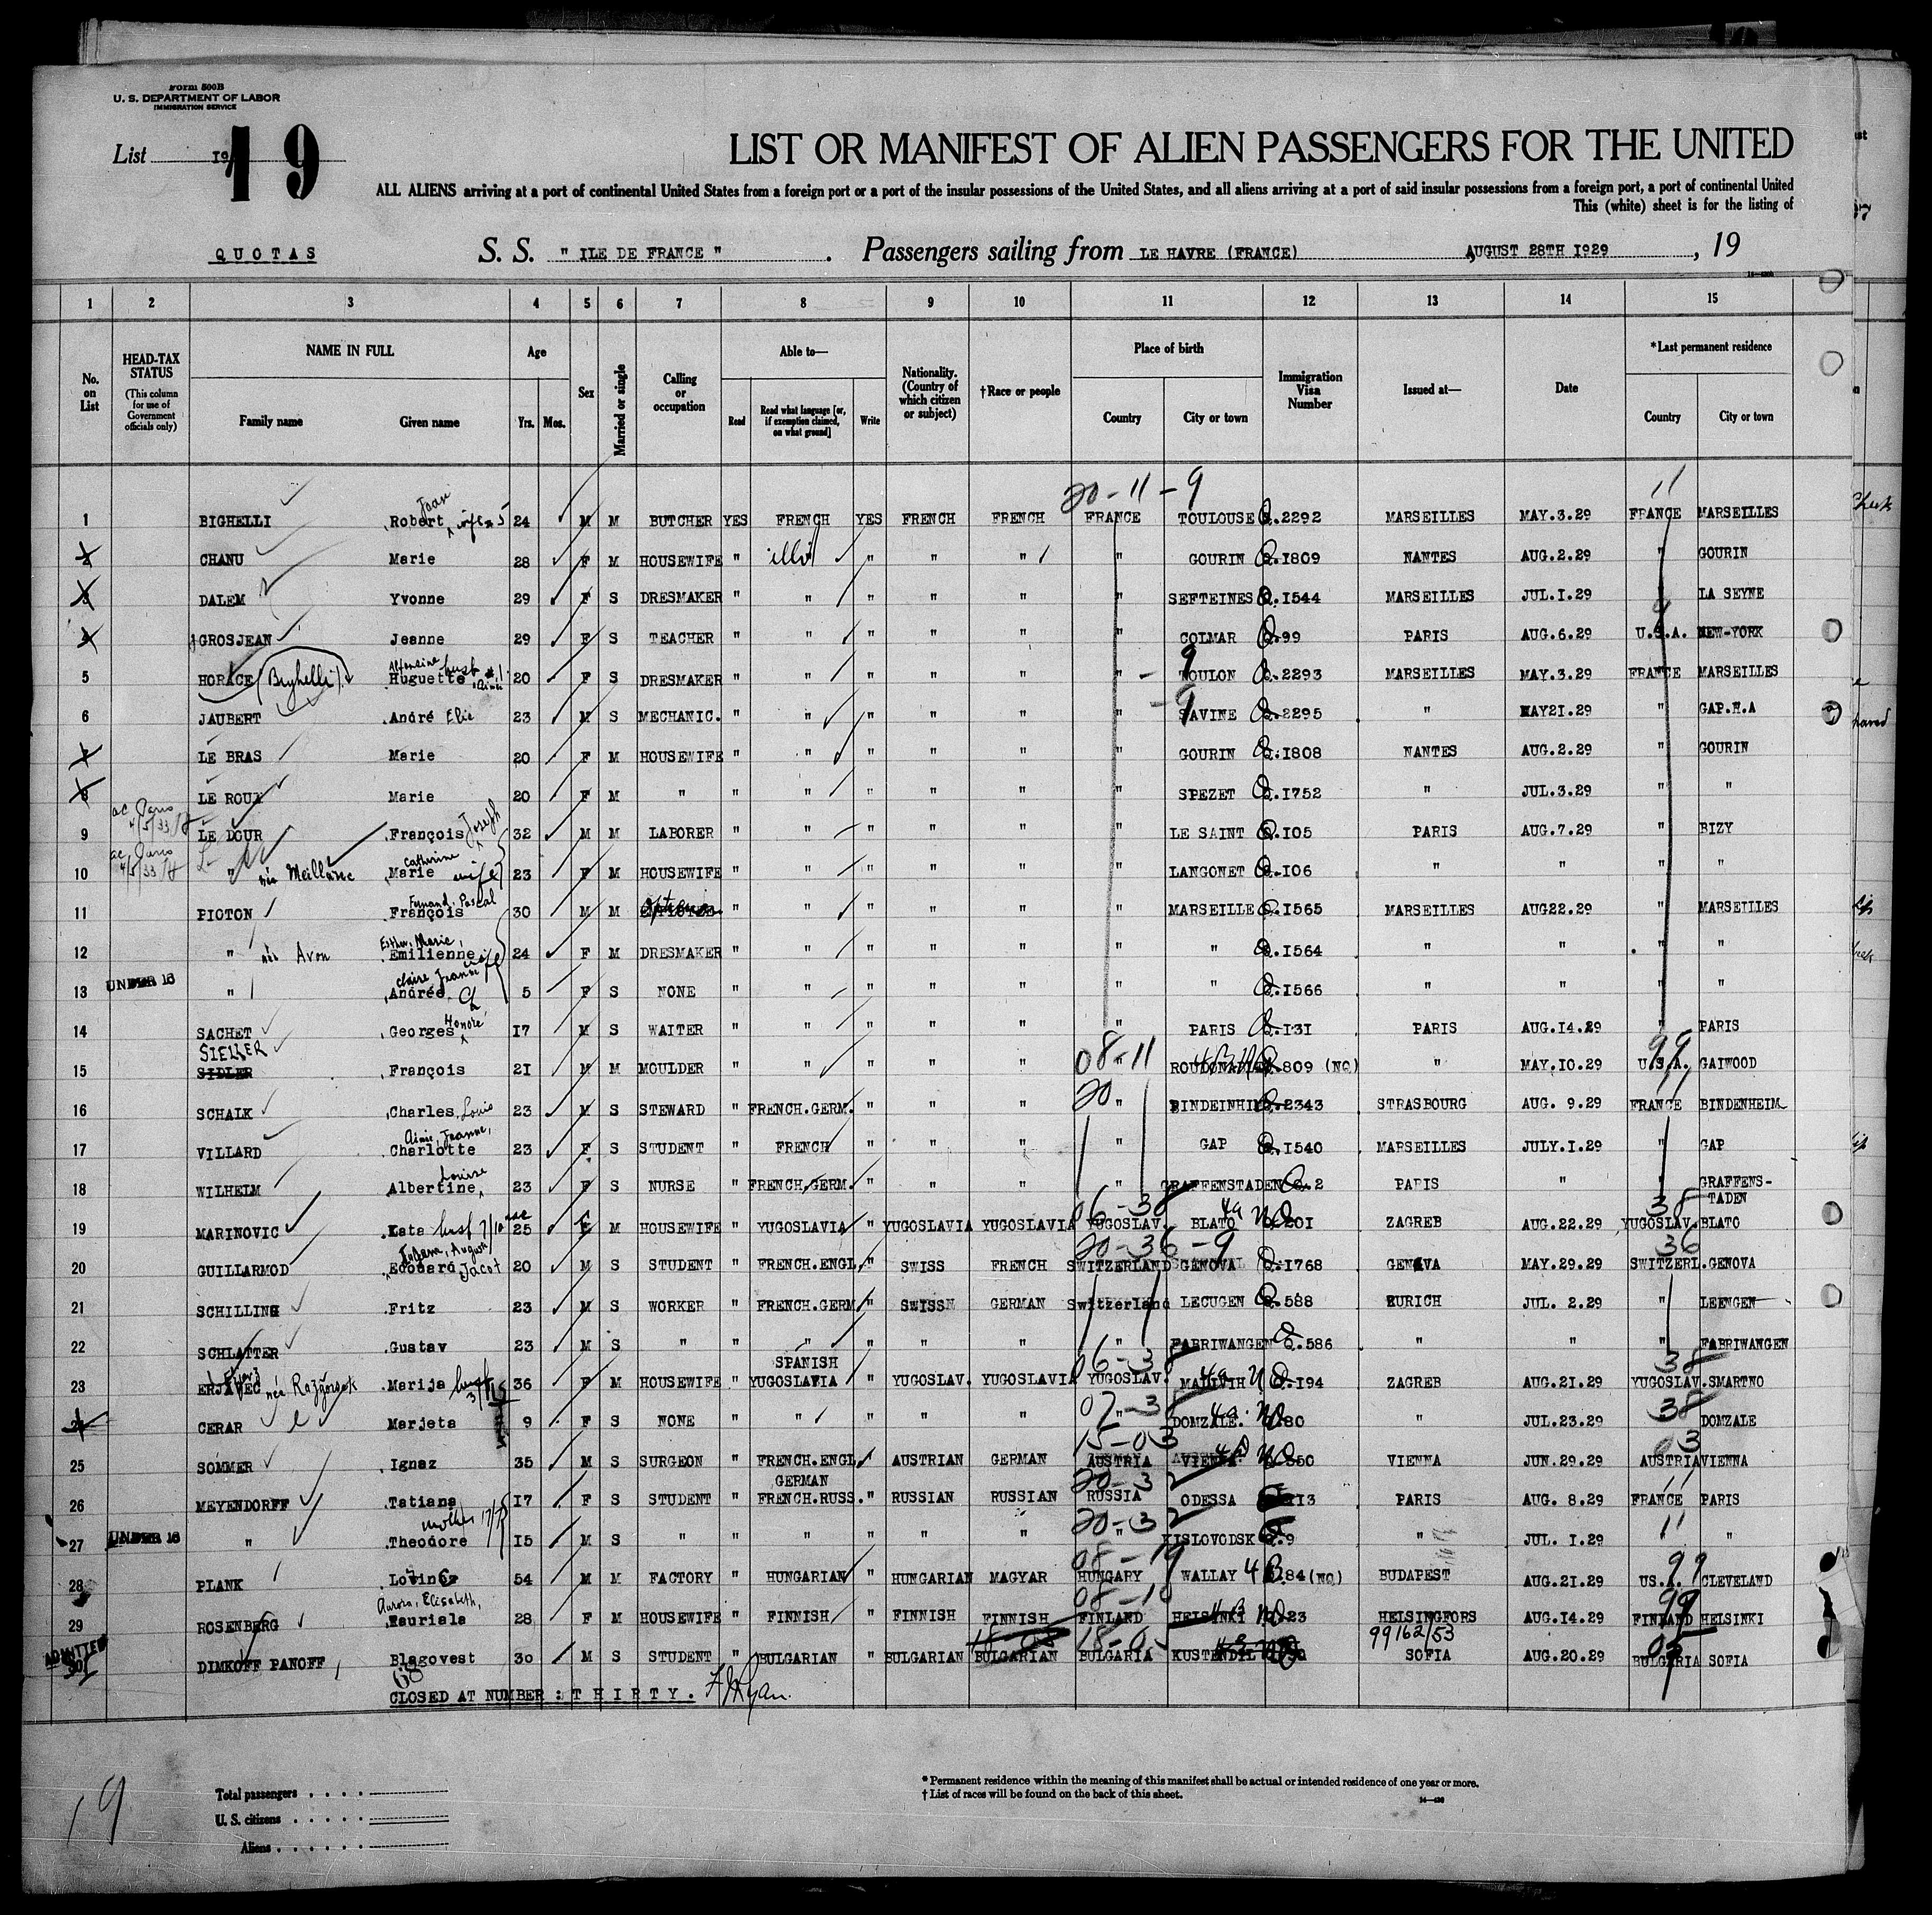 Form 500B
U. S. DEPARTMENT OF LABOR
IMMIGRATION SERVICE
List 19
19
LIST OR MANIFEST OF ALIEN PASSENGERS FOR THE UNITED
ALL ALIENS arriving at a port of continental United States from a foreign port or a port of the insular possessions of the United States, and all aliens arriving at a port of said insular possessions from a foreign port, a port of continental United
This (white) sheet is for the listing of
QUOTAS S. S. " ILE DE FRANCE " . Passengers sailing from LE HAVRE (FRANCE) AUGUST 28TH 1929 , 19
1 2 3 4 5 6 7 8 9 10 11 12 13 14 15
No. on List
HEAD-TAX STATUS (This column for use of Government officials only)
NAME IN FULL Family name Given name
Age Yrs. Mos.
Sex
Married or single
Calling or occupation
Able to— Read Read what language [or, if exemption claimed, on what ground] Write
Nationality. (Country of which citizen or subject)
†Race or people
Place of birth Country City or town
Immigration Visa Number
Issued at—
Date
*Last permanent residence Country City or town
20-11-9 11
1 BIGHELLI Robert Jean wife 5 24 M M BUTCHER YES FRENCH YES FRENCH FRENCH FRANCE TOULOUSE Q.2292 MARSEILLES MAY.3.29 FRANCE MARSEILLES
2 CHANU Marie 28 F M HOUSEWIFE " " " " " GOURIN Q.1809 NANTES AUG.2.29 " GOURIN
3 DALEM Yvonne 29 F S DRESMAKER " " " " " " SEFTEINES Q.1544 MARSEILLES JUL.1.29 " LA SEYNE
4 GROSJEAN Jeanne 29 F S TEACHER " " " " " " COLMAR Q.99 PARIS AUG.6.29 U.S.A. NEW-YORK
5 HORACE (Bighelli) Huguette husb #1 20 F S DRESMAKER " " " " " " TOULON Q.2293 MARSEILLES MAY.3.29 FRANCE MARSEILLES
6 JAUBERT André Elie 23 M S MECHANIC. " " " " " " SAVINE Q.2295 " MAY21.29 " GAP.H.A
7 LE BRAS Marie 20 F M HOUSEWIFE " " " " " " GOURIN Q.1808 NANTES AUG.2.29 " GOURIN
8 LE ROUX Marie 20 F M " " " " " " " SPEZET Q.1752 " JUL.3.29 " "
9 LE DOUR François Joseph 32 M M LABORER " " " " " " LE SAINT Q.105 PARIS AUG.7.29 " BIZY
10 " née Marie Catherine wife 23 F M HOUSEWIFE " " " " " " LANGONET Q.106 " " " "
11 PIOTON François Fernand, Pascal 30 M M " " " " " " MARSEILLE Q.1565 MARSEILLES AUG22.29 " MARSEILLES
12 " née Avon Emilienne Esther, Marie, wife 24 F M DRESMAKER " " " " " " " Q.1564 " " " "
UNDER 16
13 " Andrée Claire Jeanne ch 5 F S NONE " " " " " " " Q.1566 " " " "
14 SACHET Georges Honoré 17 M S WAITER " " " " " " PARIS Q.131 PARIS AUG.14.29 " PARIS
15 SIDLER François 21 M M MOULDER " " " " " " 809 (NQ) " MAY.10.29 U.S.A. GAIWOOD
16 SCHALK Charles Louis 23 M S STEWARD " FRENCH.GERM. " " " " BINDEINHIM Q.2343 STRASBOURG AUG. 9.29 FRANCE BINDENHEIM
17 VILLARD Charlotte Aimée, Jeanne, 23 F S STUDENT " FRENCH " " " " GAP Q.1540 MARSEILLES JULY.1.29 " GAP
18 WILHELM Albertine Louise 23 F S NURSE " FRENCH,GERM. " " " " GRAFFENSTADEN Q.2 PARIS " " GRAFFENS-TADEN
19 MARINOVIC Kata husb 25 F M HOUSEWIFE " YUGOSLAVIA " YUGOSLAVIA YUGOSLAVIA YUGOSLAV. BLATO 201 ZAGREB AUG.22.29 YUGOSLAV. BLATO
20 GUILLARMOD Edouard Jacot 20 M S STUDENT " FRENCH.ENGL. " SWISS FRENCH SWITZERLAND GENOVA Q.1768 GENEVA MAY.29.29 SWITZERL. GENOVA
21 SCHILLING Fritz 23 M S WORKER " FRENCH.GERM. " SWISS GERMAN Switzerland LECUGEN Q.588 ZURICH JUL. 2.29 " LEENGEN
22 SCHLATTER Gustav 23 M S " " " " " " " FABRIWANGEN Q.586 " " " FABRIWANGEN
23 ERJAVEC née Marija husb 36 F M HOUSEWIFE " SPANISH YUGOSLAVIA " YUGOSLAV. YUGOSLAVIA YUGOSLAV. Q.194 ZAGREB AUG.21.29 YUGOSLAV. SMARTNO
24 CERAR Marjeta 9 F S NONE " " " " " " DOMZALE. 80 " JUL.23.29 DOMZALE
25 SOMMER Ignaz 35 M S SURGEON " FRENCH.ENGL. GERMAN " AUSTRIAN GERMAN AUSTRIA VIENNA 350 VIENNA JUN.29.29 AUSTRIA VIENNA
26 MEYENDORFF Tatiana 17 F S STUDENT " FRENCH.RUSS. " RUSSIAN RUSSIAN RUSSIA ODESSA 113 PARIS AUG. 8.29 FRANCE PARIS
UNDER 16
27 " Theodore mother 15 M S " " " " " " " KISLOVODSK Q.9 " JUL. 1.29 "
28 PLANK 54 M M FACTORY " HUNGARIAN " HUNGARIAN MAGYAR HUNGARY WALLAY 84 (NQ) BUDAPEST AUG.21.29 US.A. CLEVELAND
29 ROSENBERG Tauriala Aurora, Elisabeth, 28 F M HOUSEWIFE " FINNISH " FINNISH FINNISH FINLAND HELSINKI 23 HELSINGFORS AUG.14.29 FINLAND HELSINKI
99162/53
ADMITTED
30 DIMKOFF PANOFF Blagovest 30 M S STUDENT " BULGARIAN " BULGARIAN BULGARIAN BULGARIA KUSTENDIL SOFIA AUG.20.29 BULGARIA SOFIA
CLOSED AT NUMBER : THIRTY.
Total passengers
U. S. citizens
Aliens
* Permanent residence within the meaning of this manifest shall be actual or intended residence of one year or more.
† List of races will be found on the back of this sheet.
19